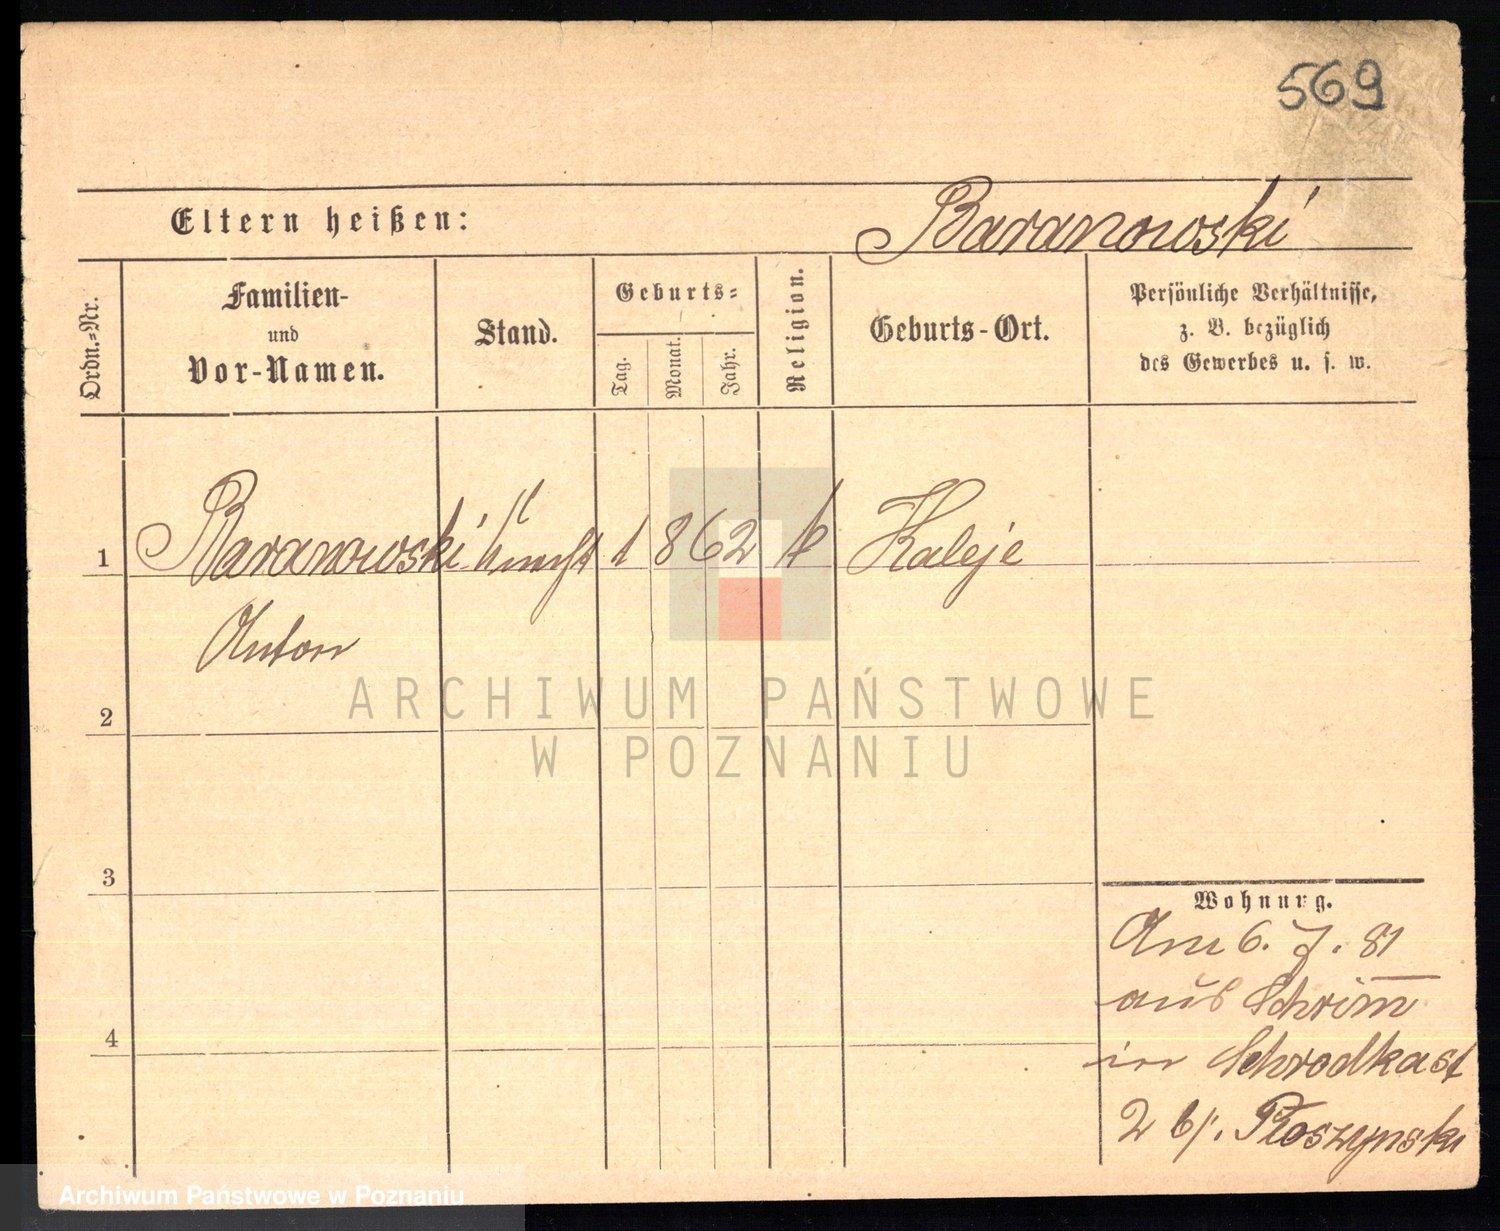 569
Eltern heißen: Baranowski
Ordn.-Nr.
Familien-
und
Vor-Namen.
Stand.
Geburts-
Tag.
Monat.
Jahr.
Religion.
Geburts-Ort.
Persönliche Verhältnisse,
z. B. bezüglich
des Gewerbes u. s. w.
1 Baranowski Knecht 1 8 62 k Kaleje
Anton
ARCHIWUM PAŃSTWOWE
2
W POZNANIU
3
Wohnung.
Am 6. 7. 81
aus Schrimm
4
in Schrodkast
2 b/. Płoszynski
Archiwum Państwowe w Poznaniu